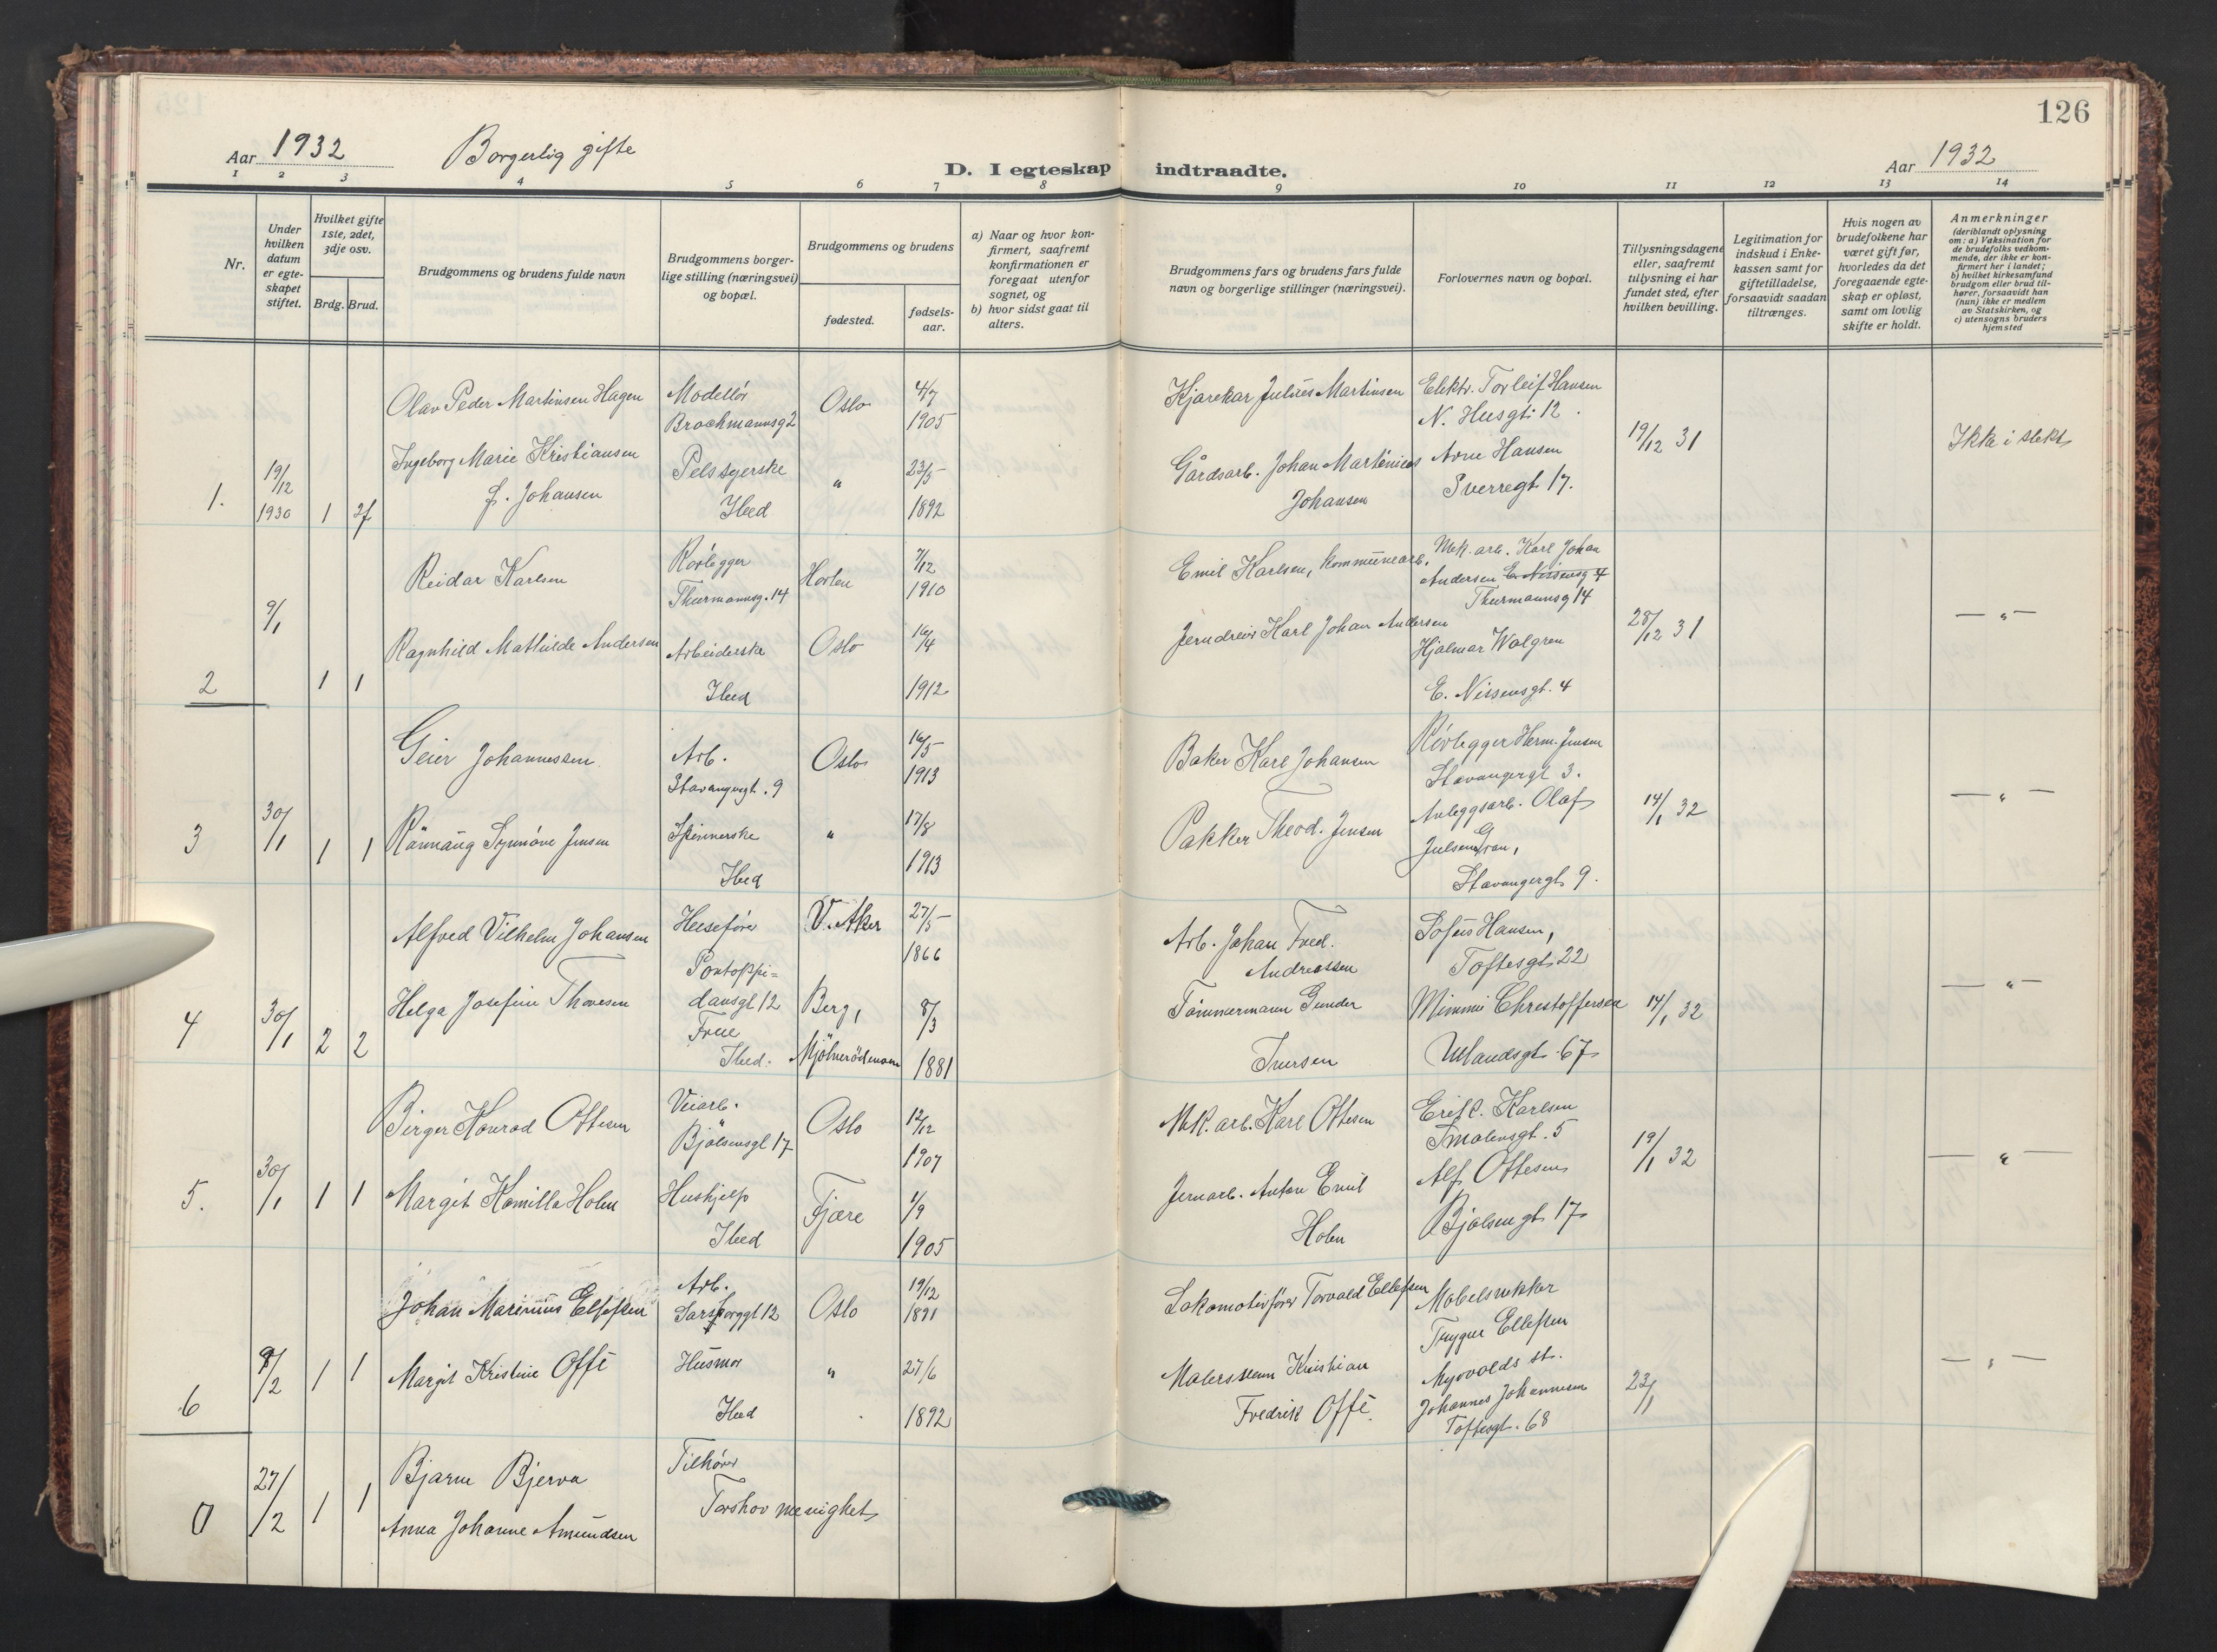 126
Aar 1932 Borgerlig gifte D. I egteskap indtraadte. Aar 1932
1 2 3 4 5 6 7 8 9 10 11 12 13 14
Nr.
Under
hvilken
datum
er egte-
skapet
stiftet.
Hvilket gifte
1ste, 2det,
3dje osv.
Brdg. Brud.
Brudgommens og brudens fulde navn
Brudgommens borger-
lige stilling (næringsvei)
og bopæl.
Brudgommens og brudens
fødested.
fødsels-
aar.
a) Naar og hvor kon-
firmert, saafremt
konfirmationen er
foregaat utenfor
sognet, og
b) hvor sidst gaat til
alters.
Brudgommens fars og brudens fars fulde
navn og borgerlige stillinger (næringsvei).
Forlovernes navn og bopæl.
Tillysningsdagene
eller, saafremt
tillysning ei har
fundet sted, efter
hvilken bevilling.
Legitimation for
indskud i Enke-
kassen samt for
giftetilladelse,
forsaavidt saadan
tiltrænges.
Hvis nogen av
brudefolkene har
været gift før,
hvorledes da det
foregaaende egte-
skap er opløst,
samt om lovlig
skifte er holdt.
Anmerkninger
(deriblandt oplysning
om: a) Vaksination for
de brudefolks vedkom-
mende, der ikke er kon-
firmert her i landet;
b) hvilket kirkesamfund
brudgom eller brud til-
hører, forsaavidt han
(hun) ikke er medlem
av Statskirken, og
c) utensogns bruders
hjemsted
1.
19/12
1930
1 2f
Olav Peder Martinsen Hagen
Ingeborg Marie Kristiansen
f. Johansen
Modellør
Brochmannsg 2
Pelssyerske
Ibid
Oslo
"
4/7
1905
23/5
1892
Kjørekar Julius Martinsen
Gårdsarb. Johan Martinius
Johansen
Elektr. Torleif Hansen
N. Husgt. 12.
Arne Hansen
Sverregt 17.
19/12 31
Ikke i slekt
2
9/1
1 1
Reidar Karlsen
Ragnhild Mathilde Andersen
Rørlegger
Thurmannsg. 14
Arbeiderske
Ibid
Horten
Oslo
7/12
1910
16/4
1912
Emil Karlsen, kommunearb.
Jerndreier Karl Johan Andersen
Mek. arb. Karl Johan
Andersen E. Nissensg 4
Thurmannsg 14
Hjalmar Walgren
E. Nissensgt. 4
28/12 31
— " —
3
30/1
1 1
Geier Johannessen
Rannaug Synnøve Jensen
Arb.
Stavangergt. 9
Spinnerske
Ibid
Oslo
"
16/5
1913
17/8
1913
Baker Karl Johansen
Pakker Theod. Jensen
Rørlegger Herm. Jensen
Stavangergt 3.
Anleggsarb. Olaf
Julsen Gran,
Stavangergt 9.
14/1 32
— " —
4
30/1
2 2
Alfred Vilhelm Johansen
Helga Josefine Thoresen
Heisefører
Pontoppi=
dansgt 12
Frue
Ibid.
V. Aker
Berg,
27/5
1866
8/3
1881
Arb. Johan Fred.
Andreassen
Tømmermann Gunder
Iversen
Sofus Hansen,
Toftesgt 22
Mimmi Christoffersen
Uelandsgt. 67
14/1 32
— " —
5.
30/1
1 1
Birger Konrad Ottesen
Margit Kamilla Holm
Veiarb.
Bjølsensgt 17
Hushjelp
Ibid
Oslo
Fjære
12/12
1907
1/9
1905
Mek. arb. Karl Ottesen
Jernarb. Anton Emil
Holm
Erik. Karlsen
Smalensgt. 5
Alf Ottesen
Bjølsengt 17
19/1 32
— " —
6
9/2
1 1
Johan Marinius Ellefsen
Margit Kristine Offe
Arb.
Sarsborggt 12
Husmor
Ibid
Oslo
"
19/12
1891
27/6
1892
Lokomotivfører Torvald Ellefsen
Malersvenn Kristian
Fredrik Offe.
Møbelsnekker
Trygve Ellefsen
Myrvolds st.
Johannes Johannesen
Toftesgt. 68
23/1
— " —
0
27/2
1 1
Bjarne Bjerva
Anna Johanne Amundsen
Tilhører
Torshov menighet